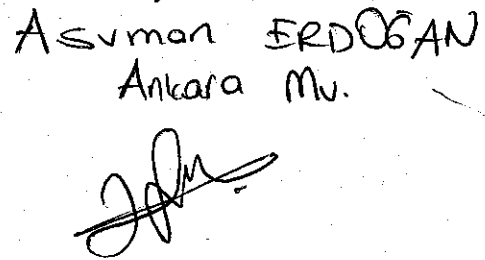 Asuman ERDOĞAN
Ankara Mv.